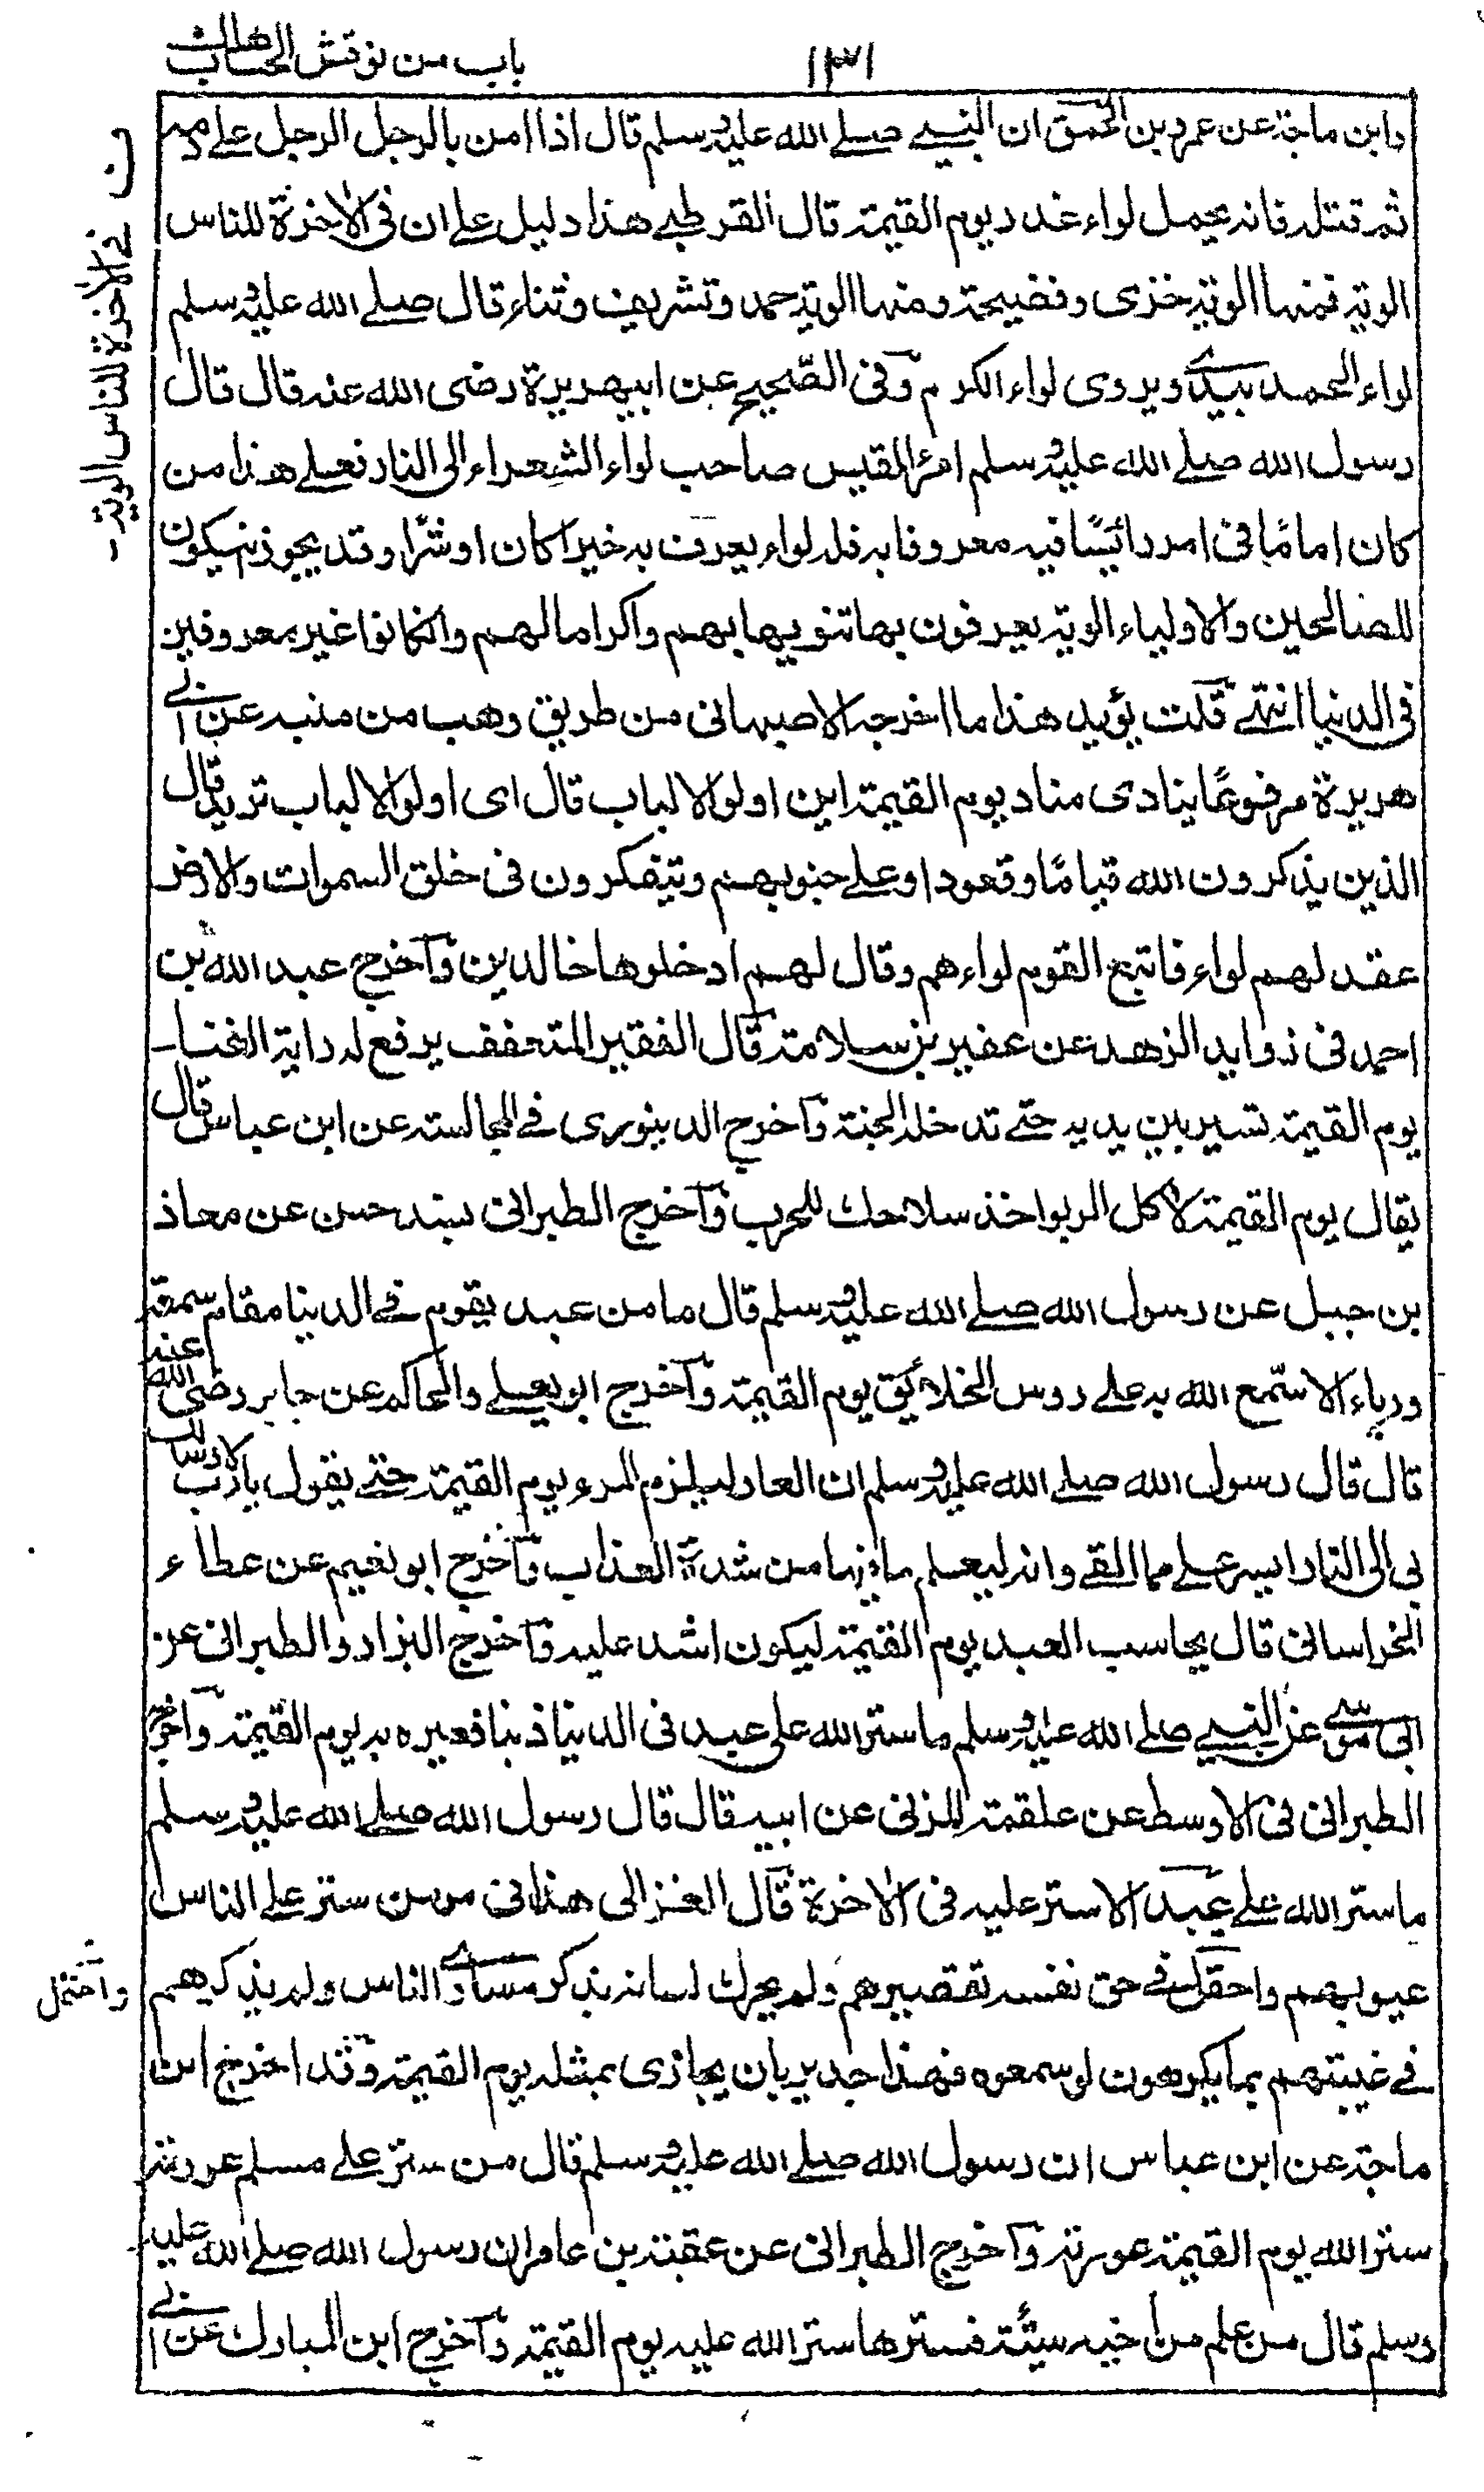 باب من نوقش الحساب هلك
١٣١
وابن ماجة عن عمرو بن الحمق ان النبي صلے الله عليه وسلم قال اذا امن بالرجل الرجل علے دمه
ثم قتله فانه يحمل لواء غدر يوم القيمة قال القرطبے هذا دليل علے ان فى الاخرة للناس
الوية فمنها الوية خزى وفضيحة ومنها الوية حمد وتشريف وثناء قال صلے الله عليه وسلم
لواء الحمد بيدے ويروى لواء الكرم وفى الصّحيح عن ابيهريرة رضى الله عنه قال قال
رسول الله صلے الله عليه وسلم امرؤ القيس صاحب لواء الشعراء الى النار فعلے هذا من
كان امامًا فى امر رائيسًا فيه معروفا به فله لواء يعرف به خيرا كان او شرًّا وقد يجوز ان يكون
للصالحين والاولياء الوية يعرفون بها تنويها بهم واكراما لهم وان كانوا غير معروفين
فى الدنيا انتهے قلت يؤيد هذا ما اخرجه الاصبهانى من طريق وهب من منبه عن ابے
هريرة مرفوعًا ينادى مناد يوم القيمة اين اولو الالباب قال اى اولو الالباب تريد قال
الذين يذكرون الله قيامًا وقعودا وعلے جنوبهم ويتفكرون فى خلق السموات والارض
عقد لهم لواء فاتبع القوم لواءهم وقال لهم ادخلوها خالدين وآخرج عبد الله بن
احمد فى زوايد الزهد عن عفير بن سلامة قال الفقير المتعفف يرفع له راية الغنا
يوم القيمة تسير بين يديه حتے تدخله الجنة وآخرج الدينورى فے المجالسة عن ابن عباس قال
يقال يوم القيمة لاكل الربوا خذ سلاحك للحرب وآخرج الطبرانى بسند حسن عن معاذ
بن جبل عن رسول الله صلے الله عليه وسلم قال ما من عبد يقوم فے الدنيا مقام سمعة
ورياء الا سمّع الله به علے روس الخلائيق يوم القيمة وآخرج ابو يعلے والحاكم عن جابر رضى الله عنه
قال قال رسول الله صلے الله عليه وسلم ان العار ليلزم المرء يوم القيمة حتے يقول يا رب لارسالك
بى الى النار ايسر علے مما القے وانه ليعلم ما فيها من شدة العذاب وآخرج ابو نعيم عن عطاء
الخراسانى قال يحاسب العبد يوم القيمة ليكون اشد عليه وآخرج البزار والطبرانى عن
ابى موسے عن النبے صلے الله عليه وسلم ما ستر الله على عبد فى الدنيا ذنبا فعيره به يوم القيمة وآخرج
الطبرانى فى الاوسط عن علقمة المزنى عن ابيه قال قال رسول الله صلے الله عليه وسلم
ما ستر الله علے عبد الا ستر عليه فى الاخرة قال الغزالى هذا فى مومن ستر علے الناس
عيوبهم واحتمل فے حق نفسه تقصيرهم ولم يحرك لسانه بذكر مساوے الناس ولم يذكرهم
فے غيبتهم بما يكرهون لو سمعوه فهذا جدير بان يجازى بمثله يوم القيمة وقد اخرج ابن
ماجة عن ابن عباس ان رسول الله صلے الله عليه وسلم قال من ستر علے مسلم عورته
ستر الله يوم القيمة عورته وآخرج الطبرانى عن عقبة بن عامر ان رسول الله صلے الله عليه
وسلم قال من علم من اخيه سيّئة فسترها ستر الله عليه يوم القيمة وآخرج ابن المبارك عن ابے
ف فے الأخرة للناس الوية -
واحتمل